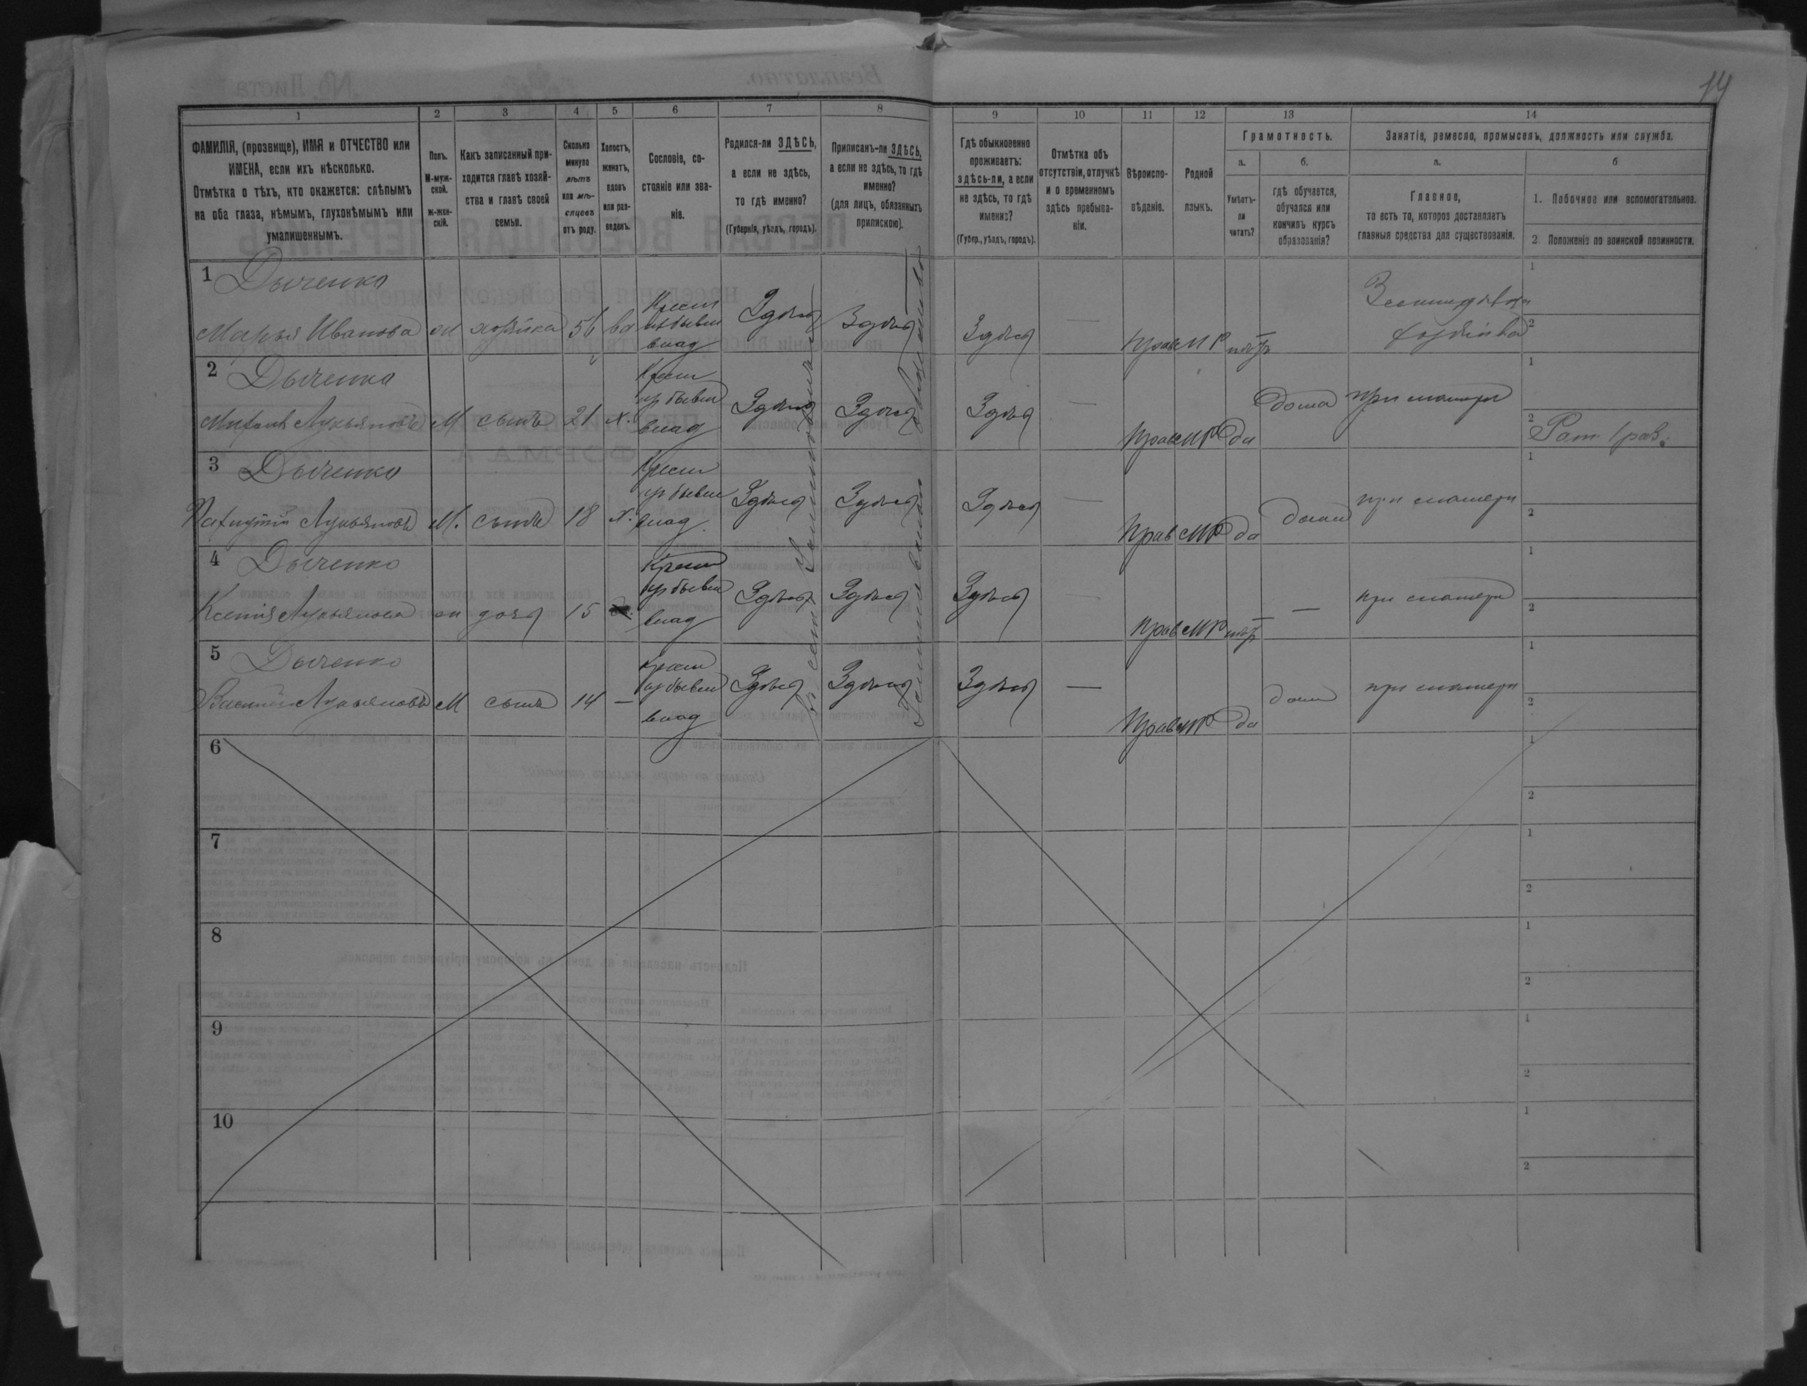 14
1
2
3
4
5
6
7
8
9
10
11
12
13
14
ФАМИЛІЯ, (прозвище), ИМЯ и ОТЧЕСТВО или
ИМЕНА, если ихъ нѣсколько.
Отмѣтка о тѣхъ, кто окажется: слѣпымъ
на оба глаза, нѣмымъ, глухонѣмымъ или
умалишеннымъ.
Полъ.
М-муж-
ской.
Ж-жен-
скій.
Какъ записанный при-
ходится главѣ хозяй-
ства и главѣ своей
семьи.
Сколько
минуло
лѣтъ
или мѣ-
сяцевъ
отъ роду.
Холостъ,
женатъ,
вдовъ
или раз-
веденъ.
Сословіе, со-
стояніе или зва-
ніе.
Родился-ли ЗДѢСЬ,
а если не здѣсь,
то гдѣ именно?
(Губернія, уѣздъ, городъ).
Приписанъ-ли ЗДѢСЬ,
а если не здѣсь, то гдѣ
именно?
(для лицъ, обязанныхъ
припискою).
Гдѣ обыкновенно
проживаетъ:
здѣсь-ли, а если
не здѣсь, то гдѣ
именно?
(Губер., уѣздъ, городъ).
Отмѣтка объ
отсутствіи, отлучкѣ
и о временномъ
здѣсь пребыва-
ніи.
Вѣроиспо-
вѣданіе.
Родной
языкъ.
Грамотность.
а.
Умѣетъ-
ли
читать?
б.
гдѣ обучается,
обучался или
кончилъ курсъ
образованія?
Занятіе, ремесло, промыселъ, должность или служба.
а.
Главное,
то есть то, которое доставляетъ
главныя средства для существованія.
б
1. Побочное или вспомогательное.
2. Положеніе по воинской повинности.
1 Дыченко
Марья Иванова хозяйка 56 вд
Крестьян
изъ бывш
влад
Здѣсь Здѣсь Здѣсь — Прав МР
1
2
2 Дыченко
Лукьяновъ М сынъ 21 х.
Крест
изъ бывш
влад
Здѣсь Здѣсь Здѣсь — Прав МР да дома при матери
1
2 Рат
3 Дыченко
Лукьяновъ М. сынъ 18 х.
Крест
изъ бывш
влад
Здѣсь Здѣсь Здѣсь — Прав МР да дома при матери
1
2
4 Дыченко
Ксенія Лукьянова дочь 15
Крест
изъ бывш
влад
Здѣсь Здѣсь Здѣсь Прав МР — при матери
1
2
5 Дыченко
Василій Лукьяновъ М сынъ 14 —
Крест
изъ бывш
влад
Здѣсь Здѣсь Здѣсь — Прав МР да дома при матери
1
2
6
1
2
7
1
2
8
1
2
9
1
2
10
1
2